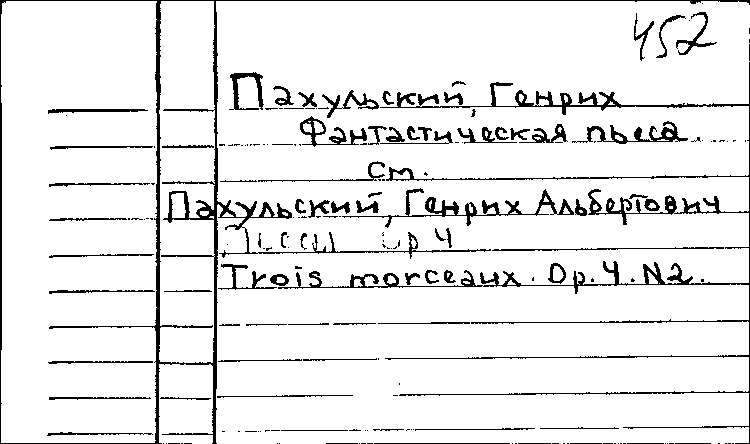 452
Пахульский, Генрих
Фантастическая пьеса.
см.
Пахульский, Генрих Альбертович
Пьесы Op 4
Trois morceaux. Op. 4. N2.